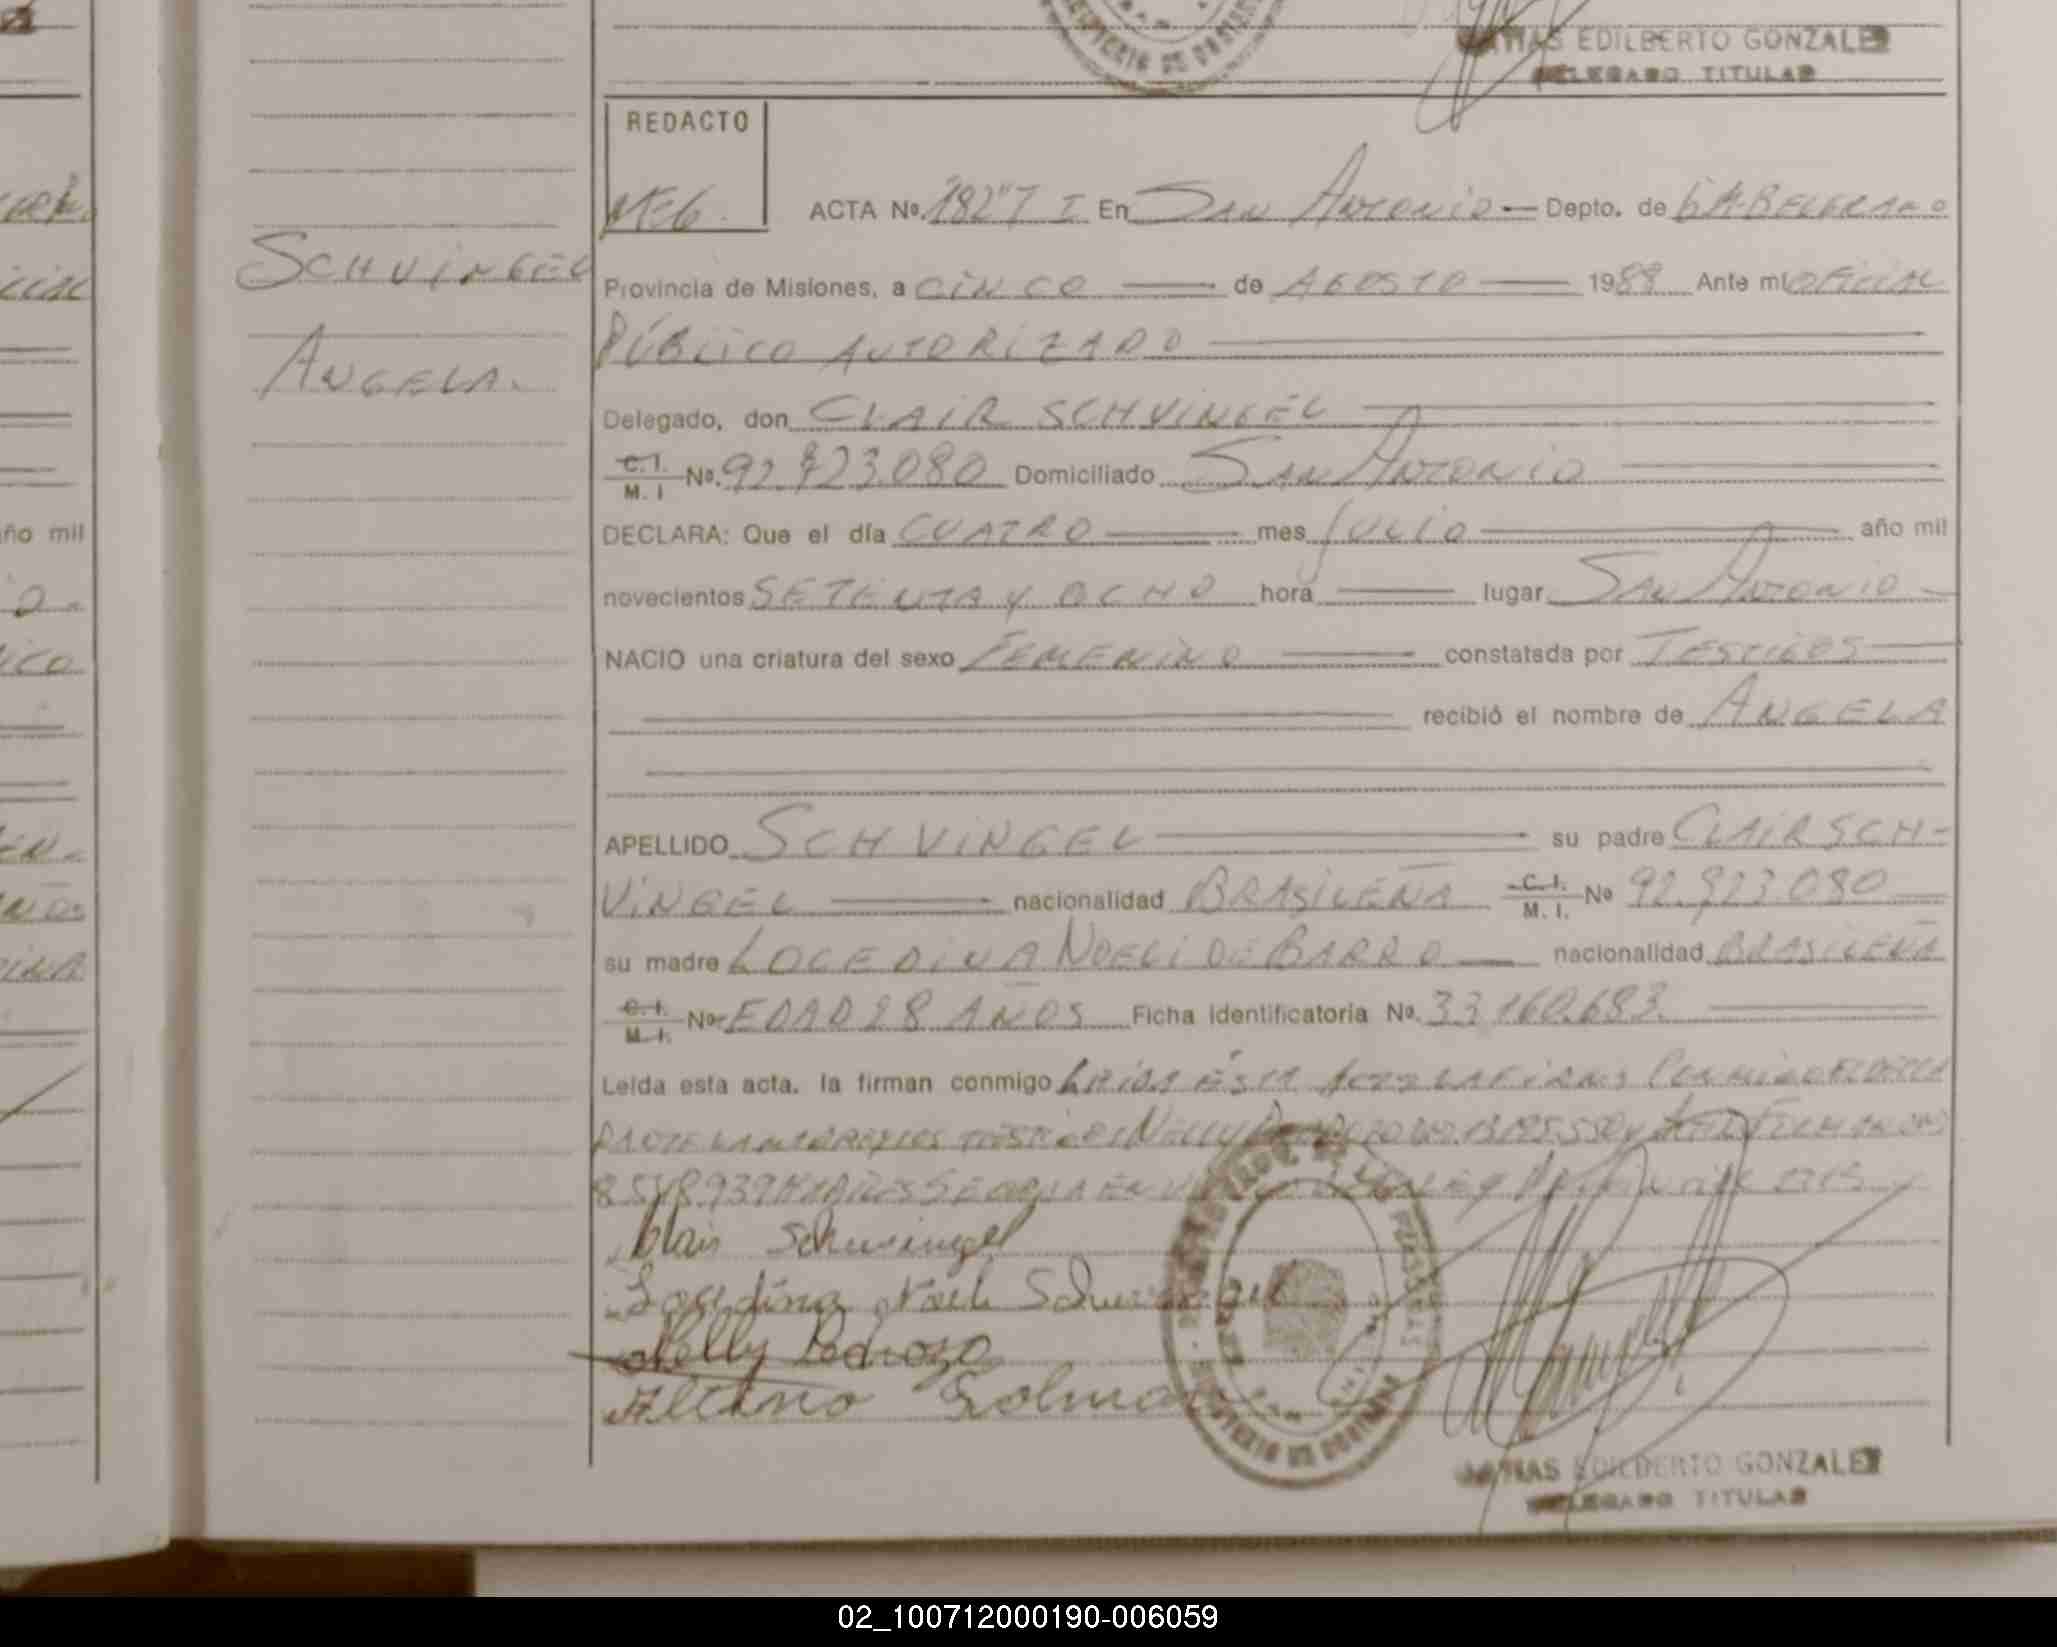 EDILBERTO GONZALEZ
DELEGADO TITULAR
REDACTO
ACTA Nº 182"T" I En SAN ANTONIO — Depto. de G.M. BELGRANO
SCHVINGEL
Provincia de Misiones, a CINCO de AGOSTO 1988 Ante mi OFICIAL
PÚBLICO AUTORIZADO
ANGELA.
Delegado, don CLAIR SCHVINGEL
C.I. M.I Nº. 92.923.080 Domiciliado SAN ANTONIO
DECLARA: Que el día CUATRO mes JULIO año mil
novecientos SETENTA Y OCHO hora lugar SAN ANTONIO
NACIO una criatura del sexo FEMENINO constatada por TESTIGOS
recibió el nombre de ANGELA
APELLIDO SCHVINGEL su padre CLAIR SCH-
VINGEL nacionalidad BRASILEÑA C.I. M.I. Nº 92.923.080
su madre LOCEDINA NOELI DE BARRO nacionalidad BRASILEÑA
C.I. M.I. Nº EDAD 28 AÑOS Ficha identificatoria Nº. 33.160.683.
Leída esta acta, la firman conmigo LEIDA ESTA ACTA LA FIRMAN
NELLY
Clair Schwingel
Nelly Pedrozo
EDILBERTO GONZALEZ
DELEGADO TITULAR
ño mil
02_100712000190-006059